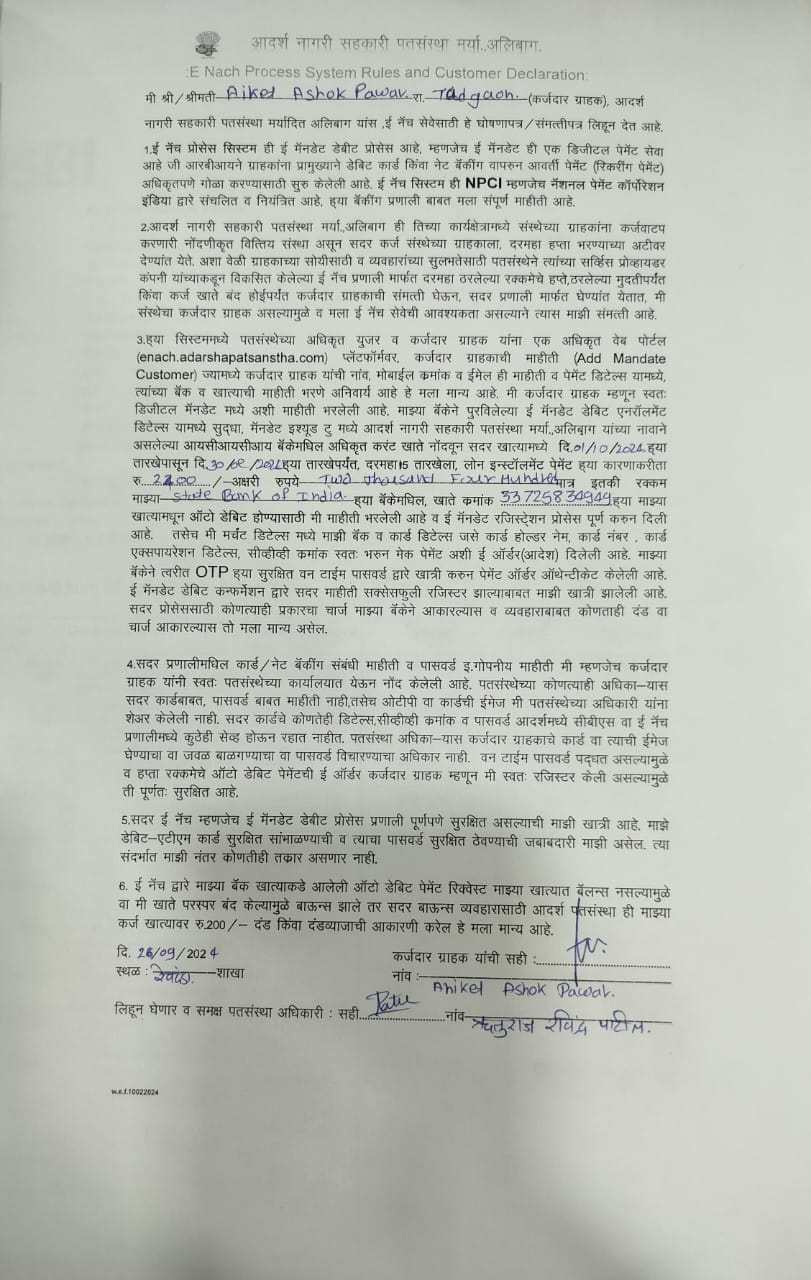 आदर्श नागरी सहकारी पतसंस्था मर्या..अलिबाग.
:E Nach Process System Rules and Customer Declaration:
मी श्री/श्रीमती Aiket Ashok Pawar रा. Tadgaon. (कर्जदार ग्राहक), आदर्श
नागरी सहकारी पतसंस्था मर्यादित अलिबाग यांस ,ई नॅच सेवेसाठी हे घोषणापत्र/संमत्तीपत्र लिहून देत आहे.
1.ई नॅच प्रोसेस सिस्टिम ही ई मॅनडेट डेबीट प्रोसेस आहे, म्हणजेच ई मॅनडेट ही एक डिजिटल पेमेंट सेवा
आहे जी आरबीआयने ग्राहकांना प्रामुख्याने डेबिट कार्ड किंवा नेट बॅकींग वापरुन आवर्ती पेमेंट (रिकरींग पेमेंट)
अधिकृतपणे गोळा करण्यासाठी सुरु केलेली आहे. ई नॅच सिस्टम ही NPCI म्हणजेच नॅशनल पेमेंट कॉर्पोरेशन
इंडिया द्वारे संचलित व नियंत्रित आहे, ह्या बॅकींग प्रणाली बाबत मला संपूर्ण माहीती आहे.
2.आदर्श नागरी सहकारी पतसंस्था मर्या..अलिबाग ही तिच्या कार्यक्षेत्रामध्ये संस्थेच्या ग्राहकांना कर्जवाटप
करणारी नोंदणीकृत वित्तिय संस्था असून सदर कर्ज संस्थेच्या ग्राहकाला, दरमहा हप्ता भरण्याच्या अटीवर
देण्यांत येते. अशा वेळी ग्राहकाच्या सोयीसाठी व व्यवहारांच्या सुलभतेसाठी पतसंस्थेने त्यांच्या सर्व्हिस प्रोव्हायडर
कंपनी यांच्याकडून विकसित केलेल्या ई नॅच प्रणाली मार्फत दरमहा ठरलेल्या रक्कमेचे हप्ते,ठरलेल्या मुदतीपर्यंत
किंवा कर्ज खाते बंद होईपर्यंत कर्जदार ग्राहकाची संमत्ती घेऊन, सदर प्रणाली मार्फत घेण्यांत येतात, मी
संस्थेचा कर्जदार ग्राहक असल्यामुळे व मला ई नॅच सेवेची आवश्यकता असल्याने त्यास माझी संमत्ती आहे.
3.ह्या सिस्टममध्ये पतसंस्थेच्या अधिकृत युजर व कर्जदार ग्राहक यांना एक अधिकृत वेब पोर्टल
(enach.adarshapatsanstha.com) प्लॅटफॉर्मवर, कर्जदार ग्राहकाची माहीती (Add Mandate
Customer) ज्यामध्ये कर्जदार ग्राहक यांची नांव, मोबाईल क्रमांक व ईमेल ही माहीती व पेमेंट डिटेल्स यामध्ये,
त्यांच्या बॅक व खात्याची माहीती भरणे अनिवार्य आहे हे मला मान्य आहे. मी कर्जदार ग्राहक म्हणून स्वतः
डिजीटल मॅनडेट मध्ये अशी माहीती भरलेली आहे. माझ्या बॅकेने पुरविलेल्या ई मॅनडेट डेबिट एनरॉलमेंट
डिटेल्स यामध्ये सुद्धा, मॅनडेट इश्यूड टु मध्ये आदर्श नागरी सहकारी पतसंस्था मर्या..अलिबाग यांच्या नावाने
असलेल्या आयसीआयसीआय बॅकेमधिल अधिकृत करंट खाते नोंदवून सदर खात्यामध्ये दि.01/10/2024 ह्या
तारखेपासून दि.30/ /202 ह्या तारखेपर्यंत, दरमहा 15 तारखेला, लोन इन्स्टॉलमेंट पेमेंट ह्या कारणाकरीता
रु 2400 /-अक्षरी रुपये Two thousand Four Hundred मात्र इतकी रक्कम
माझ्या State Bank of India. ह्या बॅकेमधिल, खाते क्रमांक 33725834949 ह्या माझ्या
खात्यामधून ऑटो डेबिट होण्यासाठी मी माहीती भरलेली आहे व ई मॅनडेट रजिस्ट्रेशन प्रोसेस पूर्ण करुन दिली
आहे. तसेच मी मर्चंट डिटेल्स मध्ये माझी बॅक व कार्ड डिटेल्स जसे कार्ड होल्डर नेम, कार्ड नंबर , कार्ड
एक्सपायरेशन डिटेल्स, सीव्हीव्ही क्रमांक स्वतः भरुन मेक पेमेंट अशी ई ऑर्डर(आदेश) दिलेली आहे. माझ्या
बॅकेने त्वरीत OTP ह्या सुरक्षित वन टाईम पासवर्ड द्वारे खात्री करुन पेमेंट ऑर्डर ऑथेन्टीकेट केलेली आहे.
ई मॅनडेट डेबिट कन्फर्मेशन द्वारे सदर माहीती सक्सेसफुली रजिस्टर झाल्याबाबत माझी खात्री झालेली आहे.
सदर प्रोसेससाठी कोणत्याही प्रकारचा चार्ज माझ्या बॅकेने आकारल्यास व व्यवहाराबाबत कोणताही दंड वा
चार्ज आकारल्यास तो मला मान्य असेल.
4.सदर प्रणालीमधिल कार्ड/नेट बॅकींग संबंधी माहीती व पासवर्ड इ.गोपनीय माहीती मी म्हणजेच कर्जदार
ग्राहक यांनी स्वतः पतसंस्थेच्या कार्यालयात येऊन नोंद केलेली आहे. पतसंस्थेच्या कोणत्याही अधिका-यास
सदर कार्डबाबत, पासवर्ड बाबत माहीती नाही,तसेच ओटीपी वा कार्डची ईमेज मी पतसंस्थेच्या अधिकारी यांना
शेअर केलेली नाही. सदर कार्डचे कोणतेही डिटेल्स,सीव्हीव्ही क्रमांक व पासवर्ड आदर्शमध्ये सीबीएस वा ई नॅच
प्रणालीमध्ये कुठेही सेव्ह होऊन रहात नाहीत. पतसंस्था अधिका-यास कर्जदार ग्राहकाचे कार्ड वा त्याची ईमेज
घेण्याचा वा जवळ बाळगण्याचा वा पासवर्ड विचारण्याचा अधिकार नाही. वन टाईम पासवर्ड पद्धत असल्यामुळे
व हप्ता रक्कमेचे ऑटो डेबिट पेमेंटची ई ऑर्डर कर्जदार ग्राहक म्हणून मी स्वतः रजिस्टर केली असल्यामुळे
ती पूर्णतः सुरक्षित आहे.
5.सदर ई नॅच म्हणजेच ई मॅनडेट डेबीट प्रोसेस प्रणाली पूर्णपणे सुरक्षित असल्याची माझी खात्री आहे. माझे
डेबिट-एटीएम कार्ड सुरक्षित सांभाळण्याची व त्याचा पासवर्ड सुरक्षित ठेवण्याची जबाबदारी माझी असेल. त्या
संदर्भात माझी नंतर कोणतीही तक्रार असणार नाही.
6. ई नॅच द्वारे माझ्या बॅक खात्याकडे आलेली ऑटो डेबिट पेमेंट रिक्वेस्ट माझ्या खात्यात बॅलन्स नसल्यामुळे
वा मी खाते परस्पर बंद केल्यामुळे बाऊन्स झाले तर सदर बाऊन्स व्यवहारासाठी आदर्श पतसंस्था ही माझ्या
कर्ज खात्यावर रु.200/- दंड किंवा दंडव्याजाची आकारणी करेल हे मला मान्य आहे.
दि. 26/09/2024 कर्जदार ग्राहक यांची सही :
स्थळ : रेवदंडा. शाखा नांव :
Aniket Ashok Pawar.
लिहून घेणार व समक्ष पतसंस्था अधिकारी : सही Patil नांव ऋतुराज रविंद्र पाटील.
w.e.f.10022024